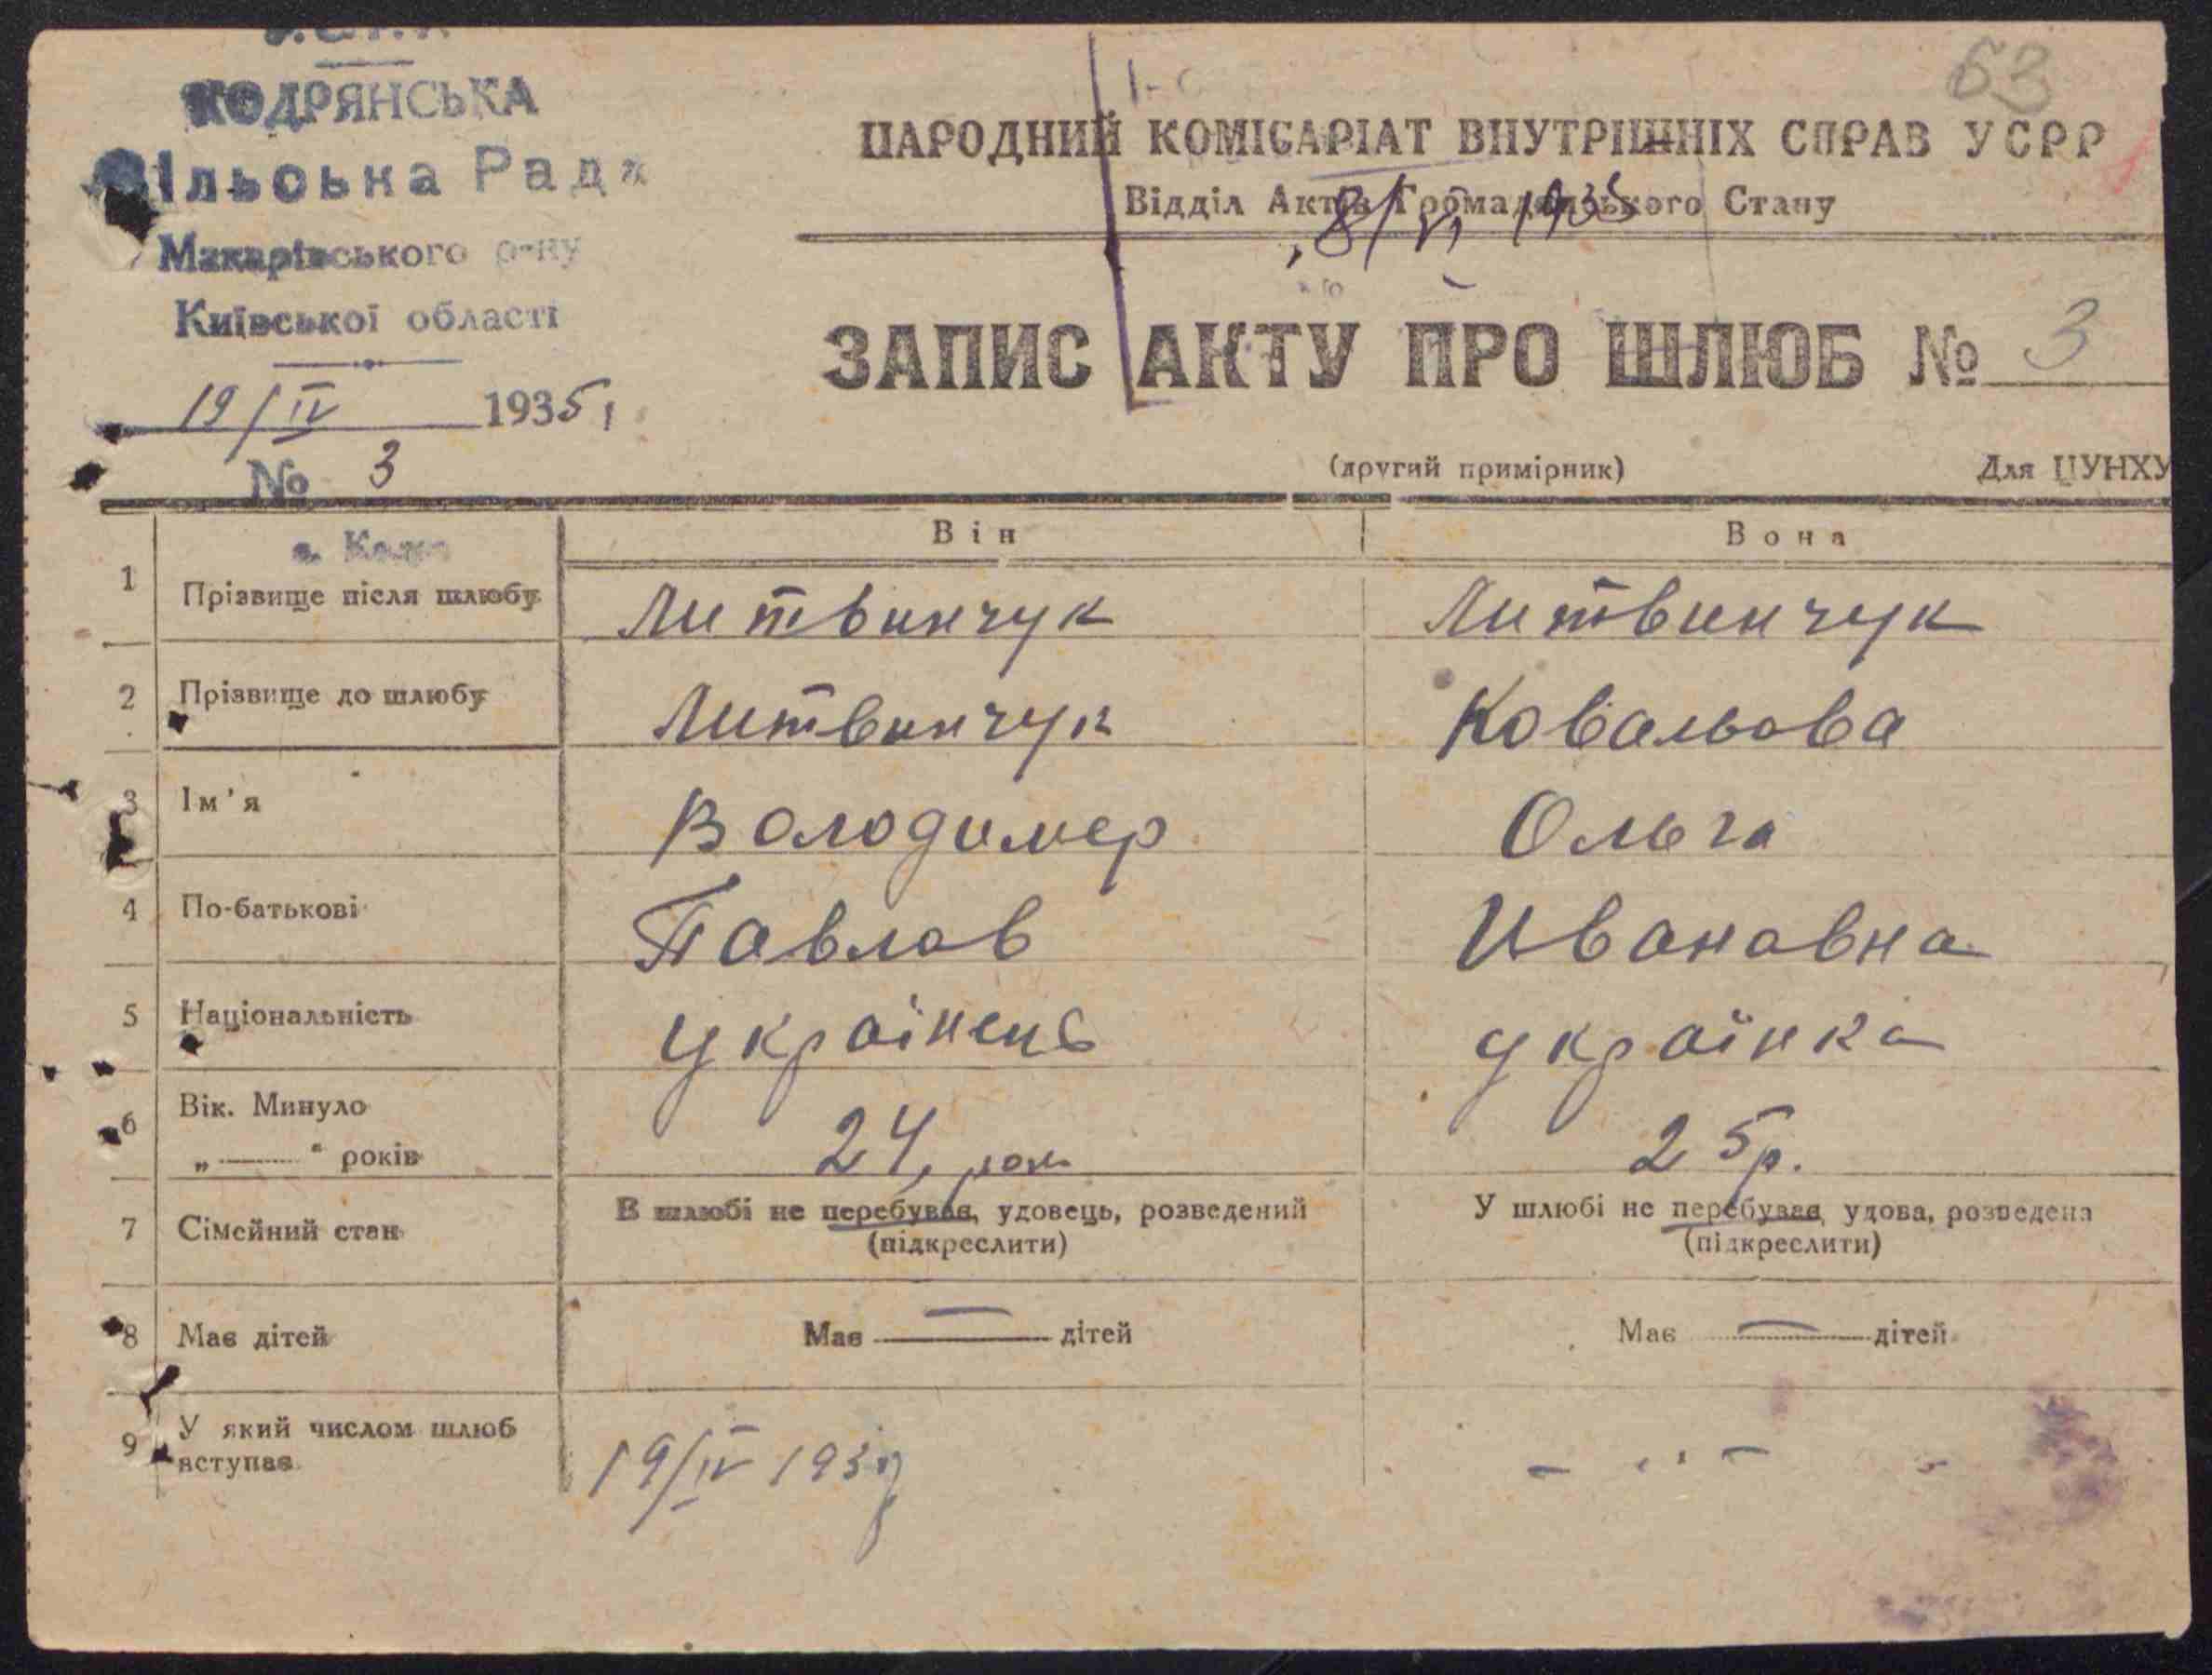 У.С.Р.Р.
КОДРЯНСЬКА
Сільська Рада
Макарівського р-ну
Київської області
19/IV 1935 г
№ 3
63
НАРОДНИЙ КОМІСАРІАТ ВНУТРІШНІХ СПРАВ УСРР
Відділ Актів Громадянського Стану
8/VI 1935
ЗАПИС АКТУ ПРО ШЛЮБ № 3
(другий примірник) Для ЦУНХУ
Він Вона
1 Прізвище після шлюбу Литвинчук Литвинчук
2 Прізвище до шлюбу Литвинчук Ковальова
3 Ім'я Володимер Ольга
4 По-батькові Павлов Ивановна
5 Національність українець українка
6 Вік. Минуло
„ “ років 24, рок 25 р.
7 Сімейний стан В шлюбі не перебував, удовець, розведений У шлюбі не перебуває, удова, розведена
(підкреслити) (підкреслити)
8 Має дітей Має — дітей Має — дітей
9 У який числом шлюб
вступає 19/IV 193 - „ -